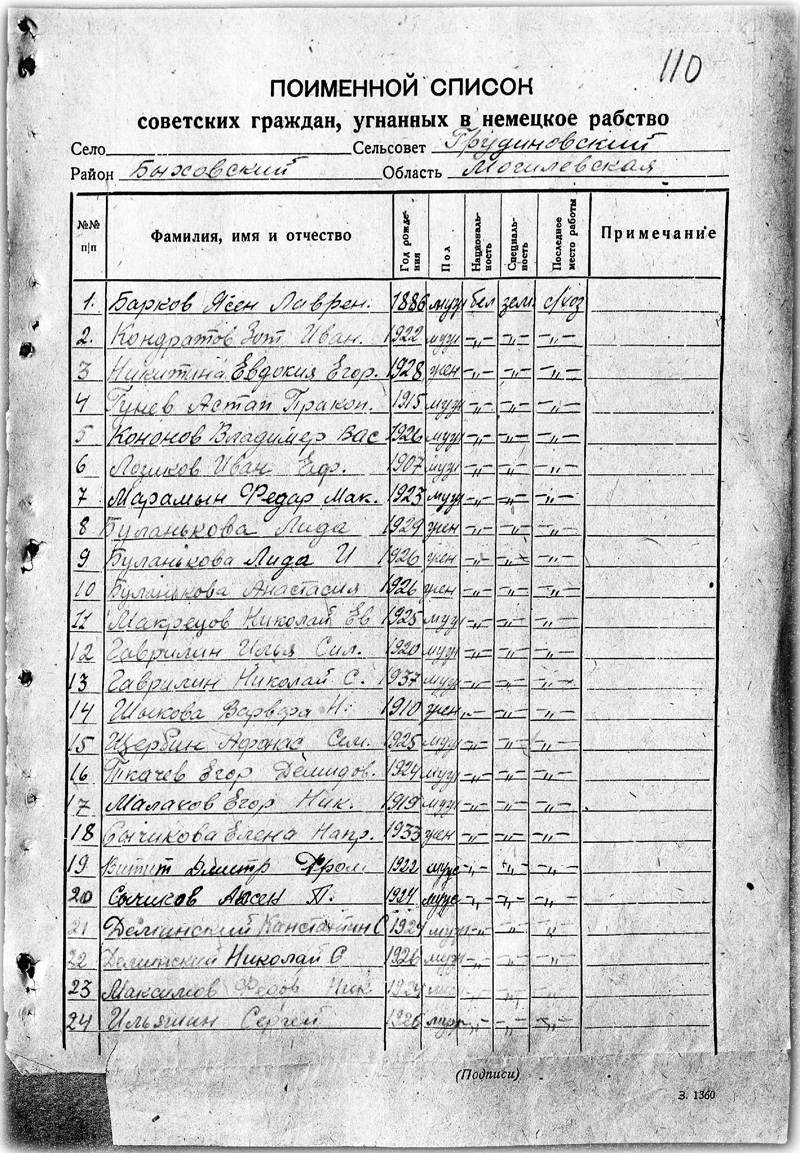 110
ПОИМЕННОЙ СПИСОК
советских граждан, угнанных в немецкое рабство
Село Сельсовет Грудиновский
Район Быховский Область Могилевская
№№ п|п Фамилия, имя и отчество Год рождения Пол Националь-ность Специаль-ность Последнее место работы Примечание
1. Барков Ясен Лаврен. 1886 муж бел земл с/хоз
2. Кондратов Зот Иван. 1922 муж -"- -"- -"-
3 Никитина Евдокия Егор. 1928 жен -"- -"- -"-
4 Гунев Астап Пракоп. 1915 муж -"- -"- -"-
5 Кононов Владимер Вас 1926 муж -"- -"- -"-
6 Лозиков Иван Еф. 1907 муж -"- -"- -"-
7 Марамын Федар Мак. 1923 муж -"- -"- -"-
8 Буланькова Лида 1929 жен -"- -"- -"-
9 Буланькова Лида И 1926 жен -"- -"- -"-
10 Буланькова Анастасия 1926 жен -"- -"- -"-
11 Макрецов Николай Ев 1925 муж -"- -"- -"-
12 Гаврилин Илья Сил. 1920 муж -"- -"- -"-
13 Гаврилин Николай С. 1937 муж -"- -"- -"-
14 Шыкова Варвара Н. 1910 жен -"- -"- -"-
15 Щербин Афанас Сем. 1925 муж -"- -"- -"-
16 Ткачев Егор Демидов. 1924 муж -"- -"- -"-
17 Малахов Егор Ник. 1919 муж -"- -"- -"-
18 Сычикова Елена Напр. 1933 жен -"- -"- -"-
19 Дмитр 1922 муж -"- -"- -"-
20 Сычиков Аксен П. 1924 муж -"- -"- -"-
21 Канстантин С 1924 муж -"- -"- -"-
22 Николай С 1926 муж -"- -"- -"-
23 Максимов Ник -"- -"-
24 Ильяшин Сергей 1926 муж -"- -"- -"-
(Подписи)
З. 1360